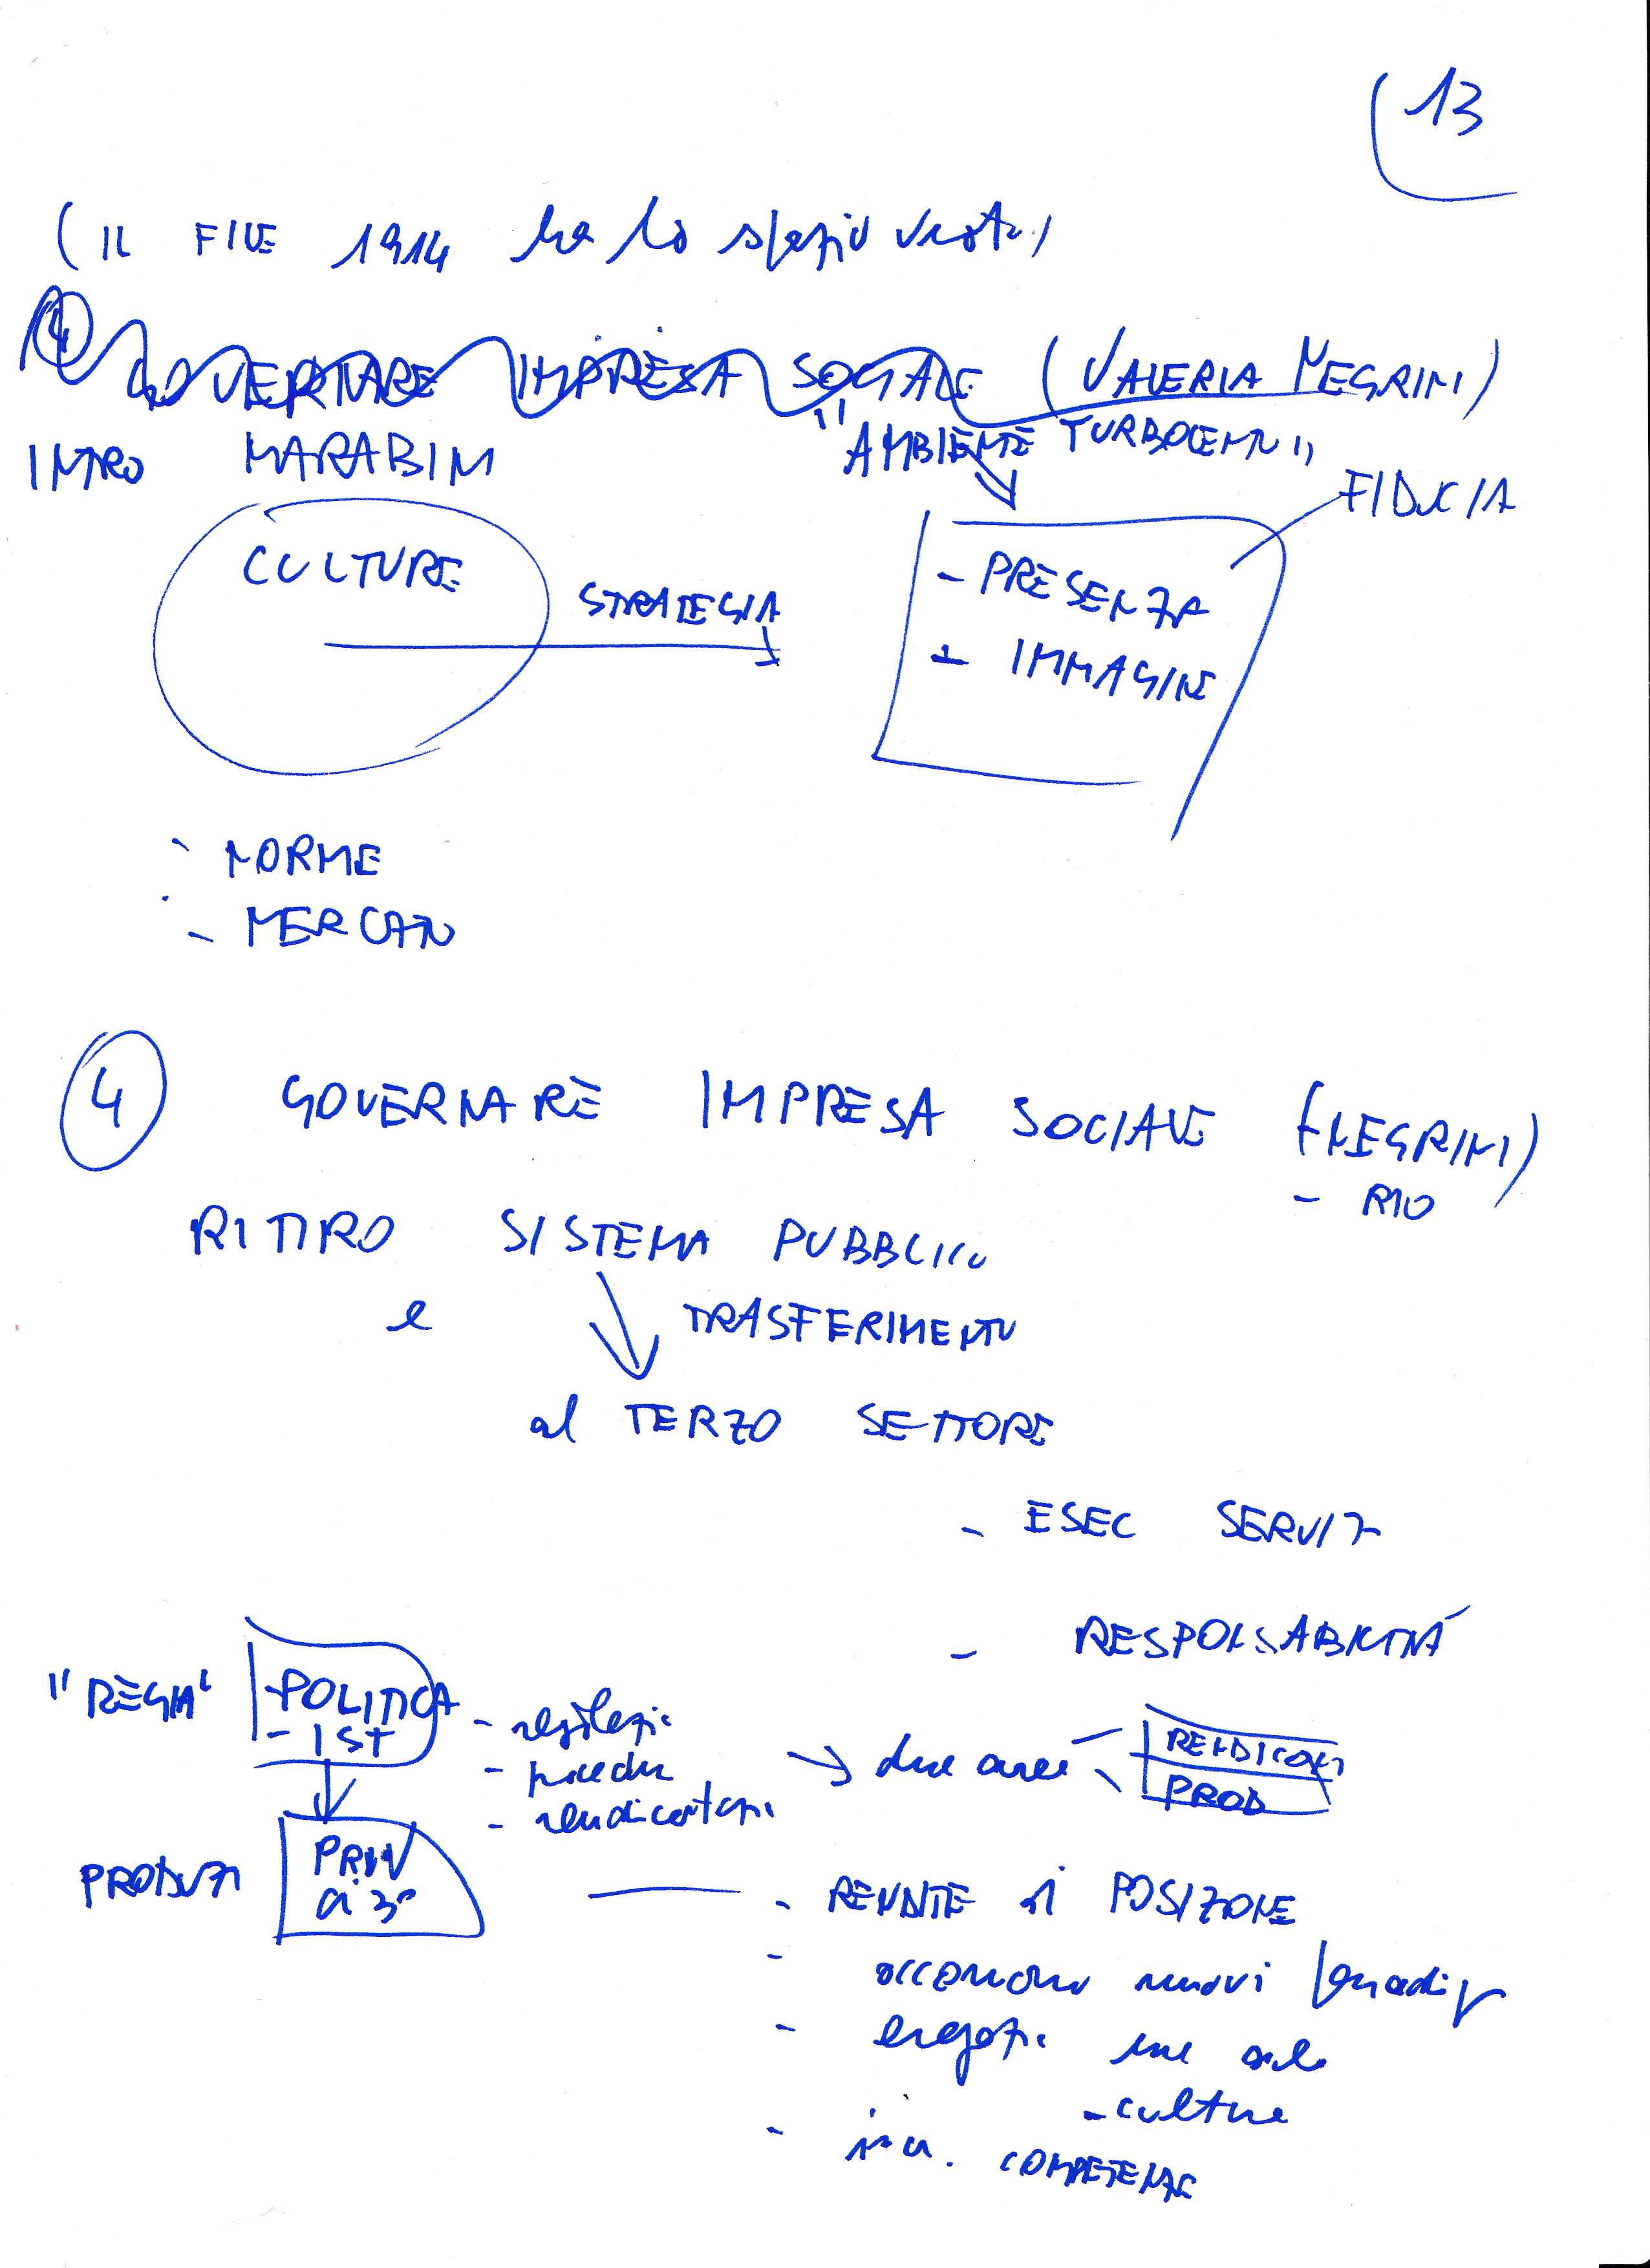 13
(IL FILE 1914 ha lo spazio vuoto)
4 GOVERNARE IMPRESA SOCIALE (VALERIA NEGRINI)
INTRO MARABINI
"AMBIENTE TURBOLENTO"
FIDUCIA
CULTURE
STRATEGIA
- PRESENZA
- IMMAGINE
- NORME
- MERCATO
4 GOVERNARE IMPRESA SOCIALE (NEGRINI)
- RIO
RITIRO SISTEMA PUBBLICO
e TRASFERIMENTO
al TERZO SETTORE
- ESEC SERVIZ
- RESPONSABILITÀ
"REGIA" - POLITICA
- IST
- procedur
- rendicontazi
due aree
RENDICONT
PROD
PRODUZ
PRIV
- RENDITE di POSIZIONE
nuovi
- culture
COMPETENZE